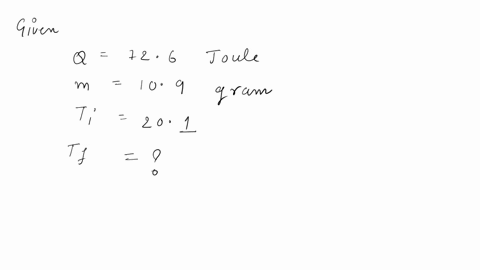 Given
Q = 72.6 Joule
m = 10.9 gram
Ti = 20.1
Tf = ?